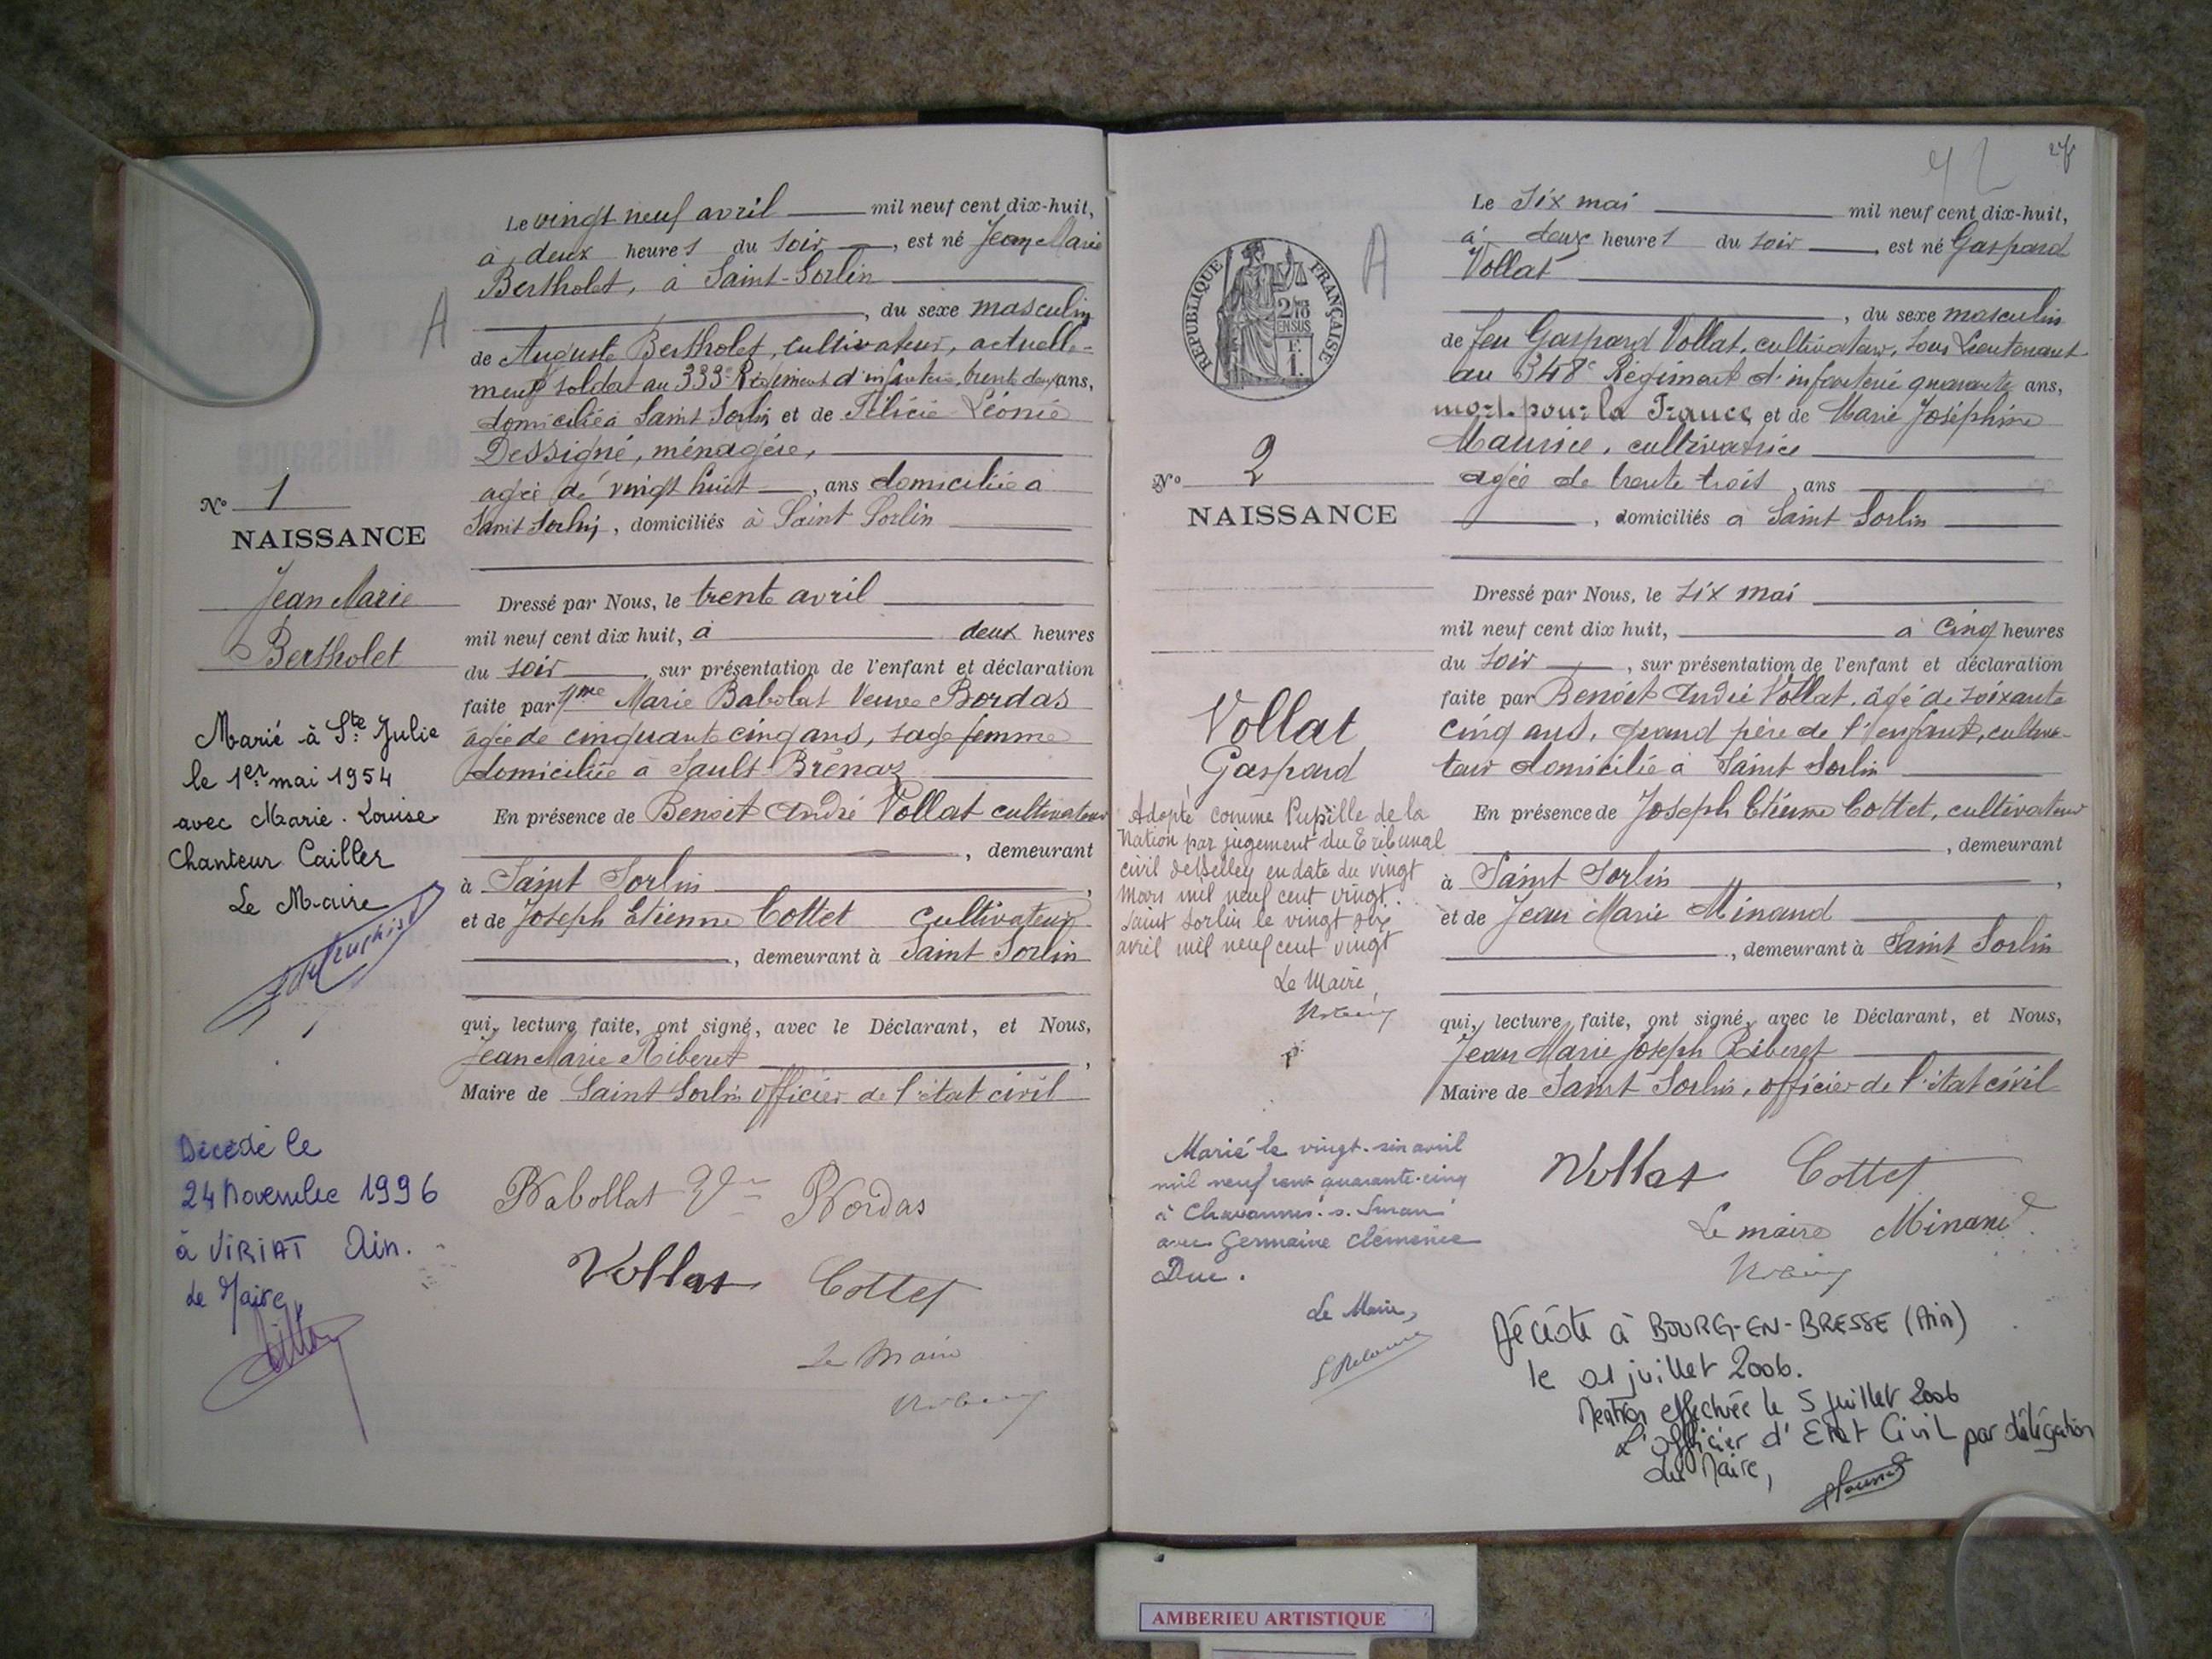 Le vingt neuf avril mil neuf cent dix-huit,
à deux heures du soir, est né Jean Marie
Bertholet, à Saint-Sorlin
, du sexe masculin
de Auguste Bertholet, cultivateur, actuelle-
ment soldat au 333e Régiment d'infanterie, trente deux ans,
domicilié à Saint Sorlin et de Félicie Léonie
Dessigné, ménagère,
agée de vingt huit, ans domiciliée à
Saint Sorlin, domiciliés à Saint Sorlin
No 1
NAISSANCE
Jean Marie
Bertholet
Dressé par Nous, le trente avril
mil neuf cent dix huit, à deux heures
du soir, sur présentation de l'enfant et déclaration
faite par Mme Marie Babolat Veuve Bordas
âgée de cinquante cinq ans, sage femme
domiciliée à Sault-Brénaz
En présence de Benoit André Vollat cultivateur
, demeurant
à Saint Sorlin,
et de Joseph Etienne Cottet cultivateur
, demeurant à Saint Sorlin
qui, lecture faite, ont signé, avec le Déclarant, et Nous,
Jean Marie Riberet,
Maire de Saint Sorlin officier de l'état civil
Marié à Ste Julie
le 1er mai 1954
avec Marie-Louise
Chanteur Cailler
Le Maire
Décédé le
24 Novembre 1996
à VIRIAT Ain.
Le Maire
Babollat Vve Bordas
Vollat Cottet
Le Maire
A
Le six mai mil neuf cent dix-huit,
à deux heures du soir, est né Gaspard
Vollat
, du sexe masculin
de feu Gaspard Vollat, cultivateur, Sous Lieutenant
au 348e Régiment d'infanterie quarante ans,
mort pour la France et de Marie Joséphine
Maurice, cultivatrice
agée de trente trois, ans
, domiciliés à Saint Sorlin
A
RÉPUBLIQUE FRANÇAISE
No 2
NAISSANCE
Vollat
Gaspard
Dressé par Nous, le six mai
mil neuf cent dix huit, à cinq heures
du soir, sur présentation de l'enfant et déclaration
faite par Benoit André Vollat, âgé de soixante
cinq ans, grand père de l'enfant, cultiva-
teur domicilié à Saint Sorlin
En présence de Joseph Etienne Cottet, cultivateur
, demeurant
à Saint Sorlin,
et de Jean Marie Minand
, demeurant à Saint Sorlin
qui, lecture faite, ont signé, avec le Déclarant, et Nous,
Jean Marie Joseph Riberet
Maire de Saint Sorlin, officier de l'état civil
Adopté comme Pupille de la
Nation par jugement du Tribunal
civil de Belley en date du vingt
mars mil neuf cent vingt.
Saint Sorlin le vingt six
avril mil neuf cent vingt
Le Maire,
Marié le vingt-six avril
mil neuf cent quarante-cinq
à Chavannes s. Suran
avec Germaine Clémence
Duc.
Le Maire,
Vollat Cottet
Le maire Minand
Décédé à BOURG-EN-BRESSE (Ain)
le 01 juillet 2006.
Mention effectuée le 5 juillet 2006
L'officier d'Etat Civil par délégation
du Maire,
AMBERIEU ARTISTIQUE